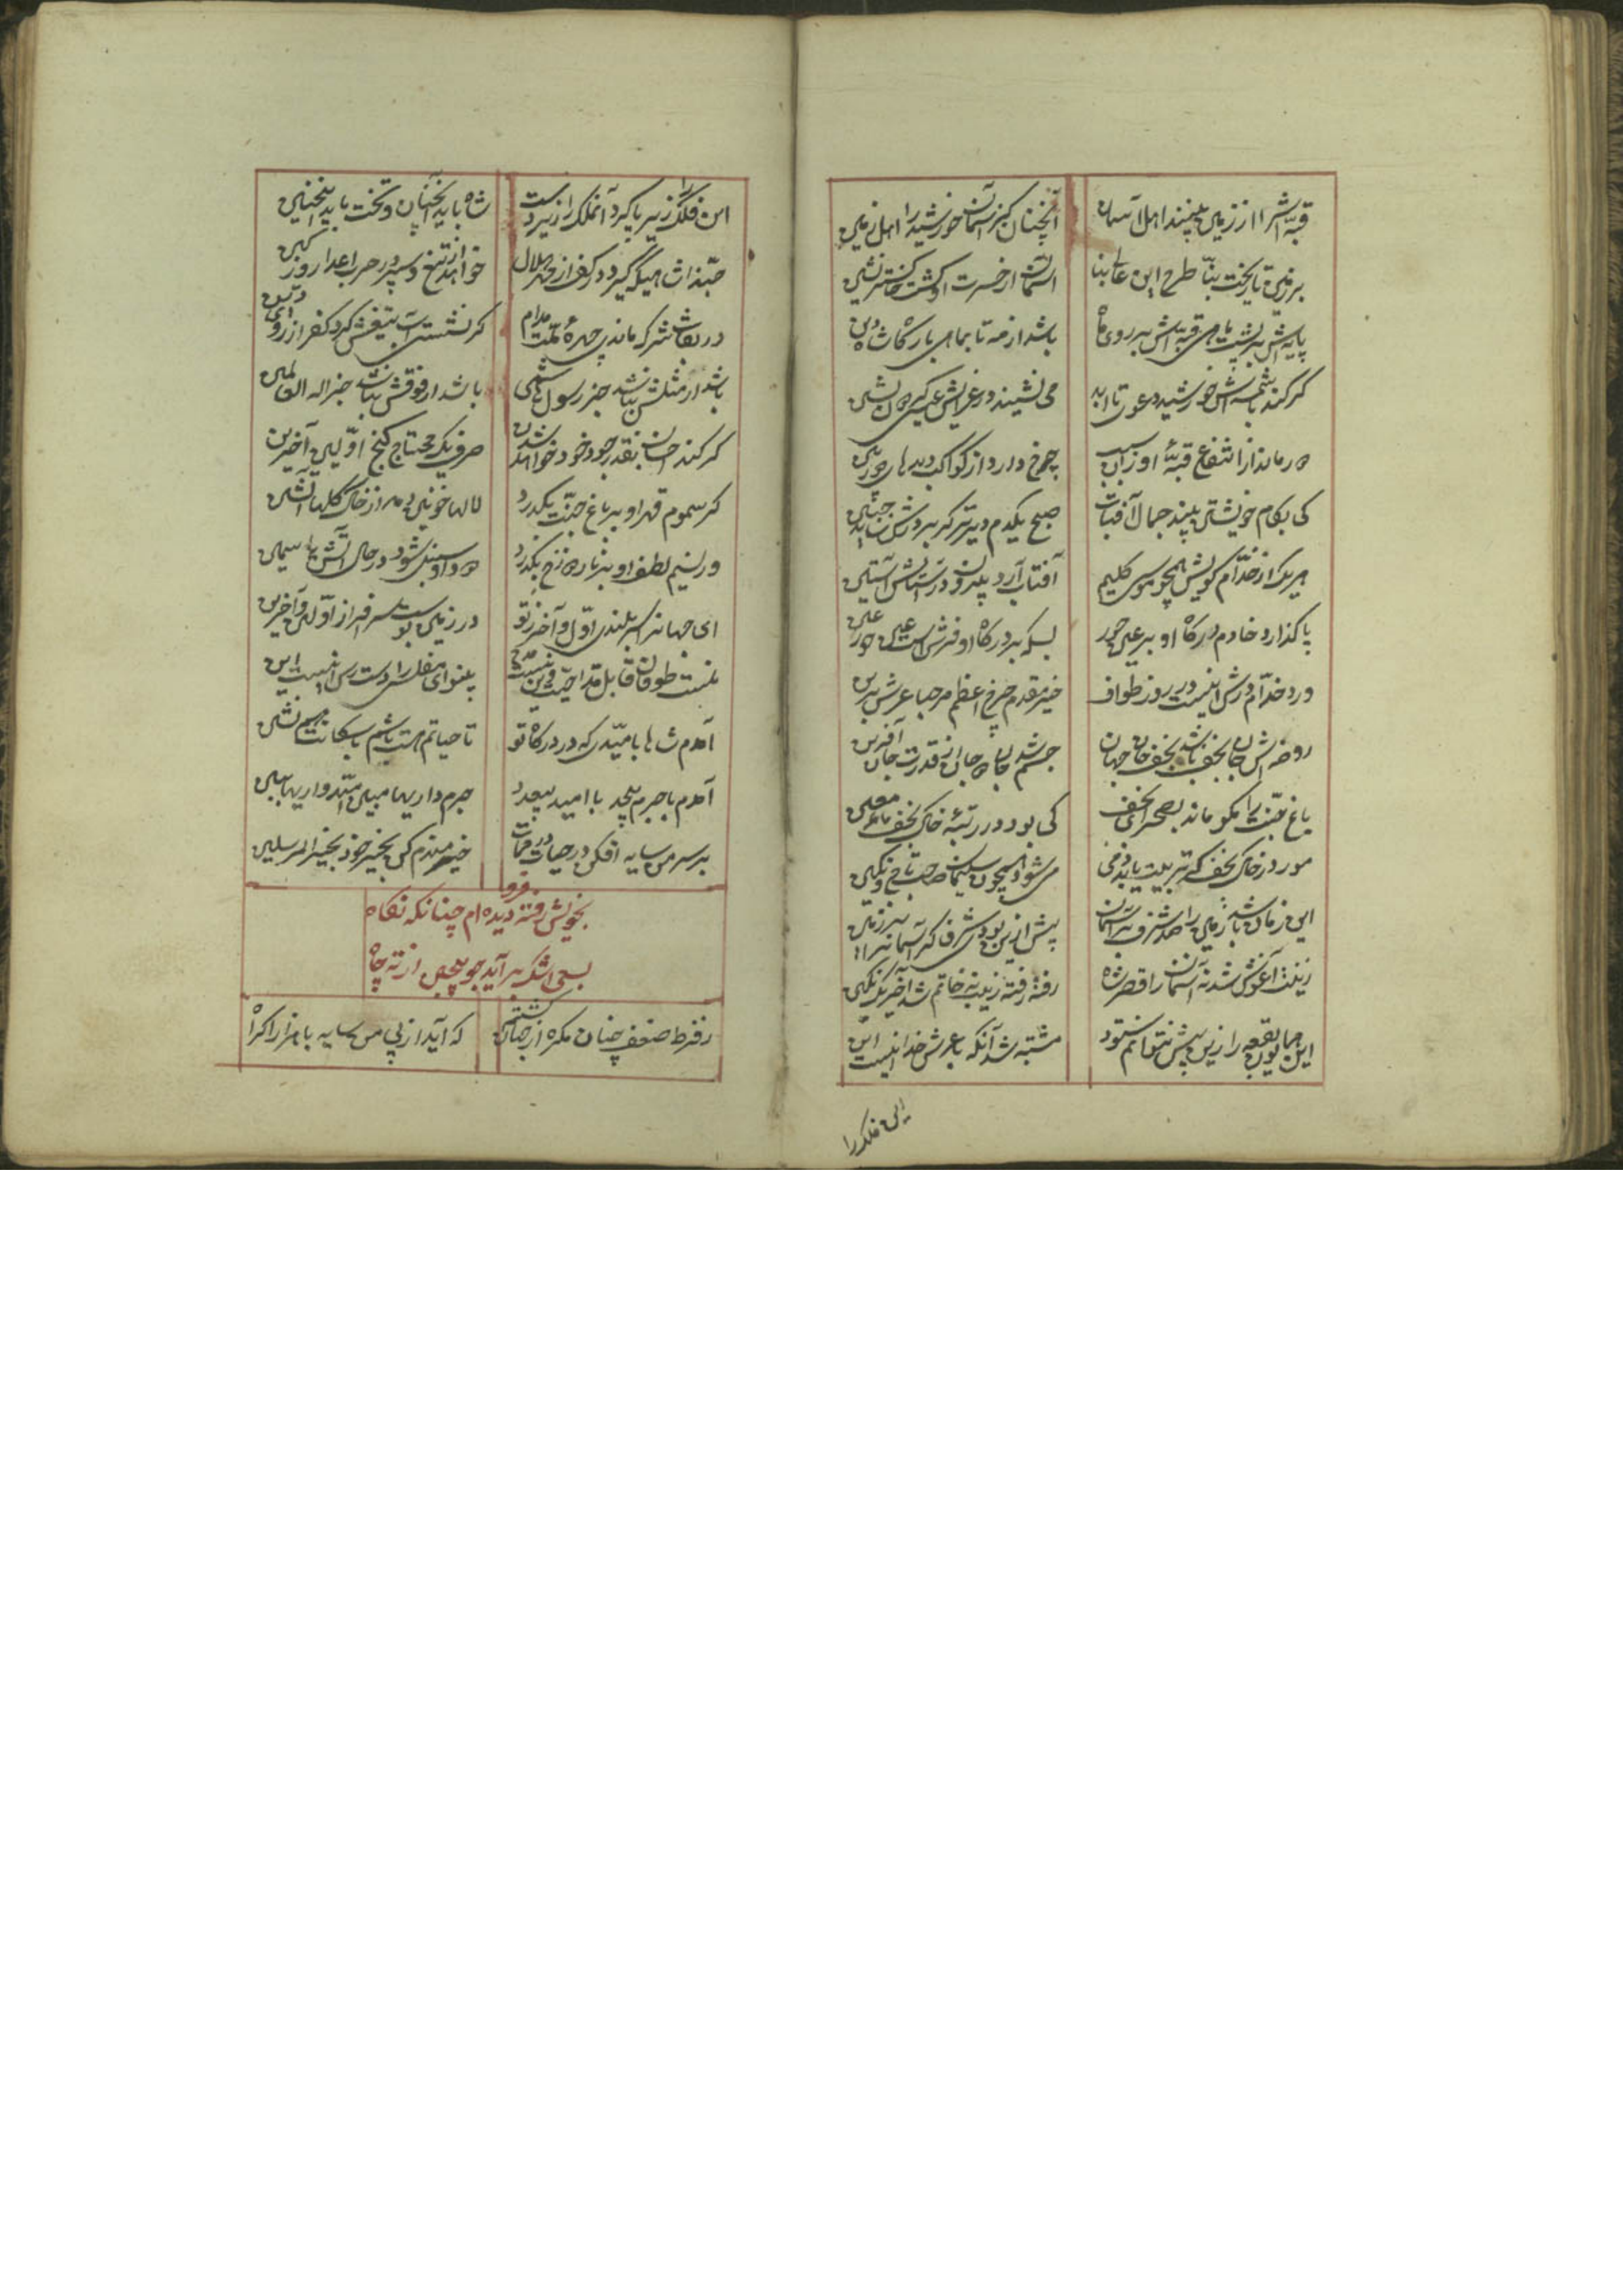 قبه اش را از زمین بینند اهل آسمان آنچنان کز آسمان خورشید را اهل زمین
بر زمین تا ریخت بنا طرح این عالی بنا آسمان از حسرت او گشت خاکستر نشین
پایه اش بر پشت ماهی قبه اش بر روی ماه باشد از مه تا بماهی بارگاه شاه دین
گر کند با شمسه اش خورشید دعوی تا ابد می نشیند در
ارتفاع قبه او زان سبب چرخ دارد از کواکب دیدهای دوربین
کی بکام خویشتن بیند جمال آفتاب صبح یکدم دیرتر گر بر درش ساید جبین
هر یک از خدام کویش همچو موسی کلیم آفتاب آرد برون در آستانش ز آستین
پا گذارد خادم درگاه او بر عین حور بسکه بر درگاه او فرش است عین حور عین
ورد خدام درش اینست در روز طواف خیر مقدم چرخ اعظم مرحبا عرش برین
روضه اش جان نجف باشد نجف جان جهان چشم بد
باغ جنت را مگو ماند بصحرای نجف کی بود در رتبه خاک نجف ماء معین
مور در خاک نجف گر تربیت یابد دمی می شود همچون سلیمان صاحب تاج و نگین
این زمان باشد زمین را صد شرف بر آسمان پیش ازین بودی شرف گر آسمانرا بر زمین
زینت آغوش شد نه آسمان را قصر شاه رفته رفته زینت نه خاتم شد آخر یک نگین
این همایون بقعه را زین بیش نتوانم ستود مشتبه شد آنکه با عرش خدا اینست این
این فلک را
این فلک را زیر پا گیرد آنملک را زیر دست شاه باید آنچنان و تخت باید اینچنین
حبذا شاهی که گیرد در کف از مهر و هلال خواهد از تیغ و سپر در حرب اعدا روز کین
در نقاب شرک ماندی چهره ملت مدام گر نشستی آب تیغش گرد کفر از روی دین
باشد ار مثلش نباشد جز رسول هاشمی باشد ار فوقش نباشد جز اله العالمین
گر کند احسان بقدر جود خود خواهد شدن صرف یک محتاج گنج اولین و آخرین
گر سموم قهر او بر باغ جنت بگذرد لالها خونین دمد از خاک گلها آتشین
ور نسیم لطف او بر نار دوزخ بگذرد دود او سنبل شود در حال آتش یاسمین
ای جهانرا سربلندی اول و آخر ز تو در زمین بوست سرفراز اولین و آخرین
نیست طوفان قابل مداحیت وین نیست مدح بینوای مفلس را دسترس اینست این
آمدم شاها بامیدی که در درگاه تو تا حیاتم هست باشم با سگانت همنشین
آمدم با جرم بیحد با امید بیعدد جرم داریها مبین امیدواریها ببین
بر سر من سایه افکن در حیات و در ممات
بخویش رفته فرو دیده ام چنانکه نگاه
بسعی اشک برآید چو بیجن از ته چاه
ز فرط ضعف چنان که آید از پی من سایه پا گذارد اگر